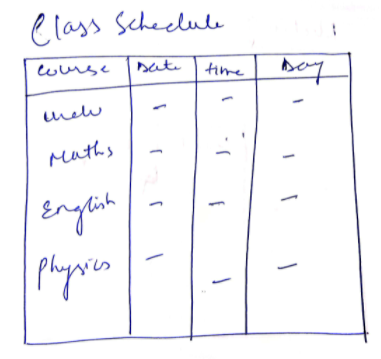 Class Schedule
Course Date time Day
Urdu - - -
Maths - - -
English - - -
Physics - - -